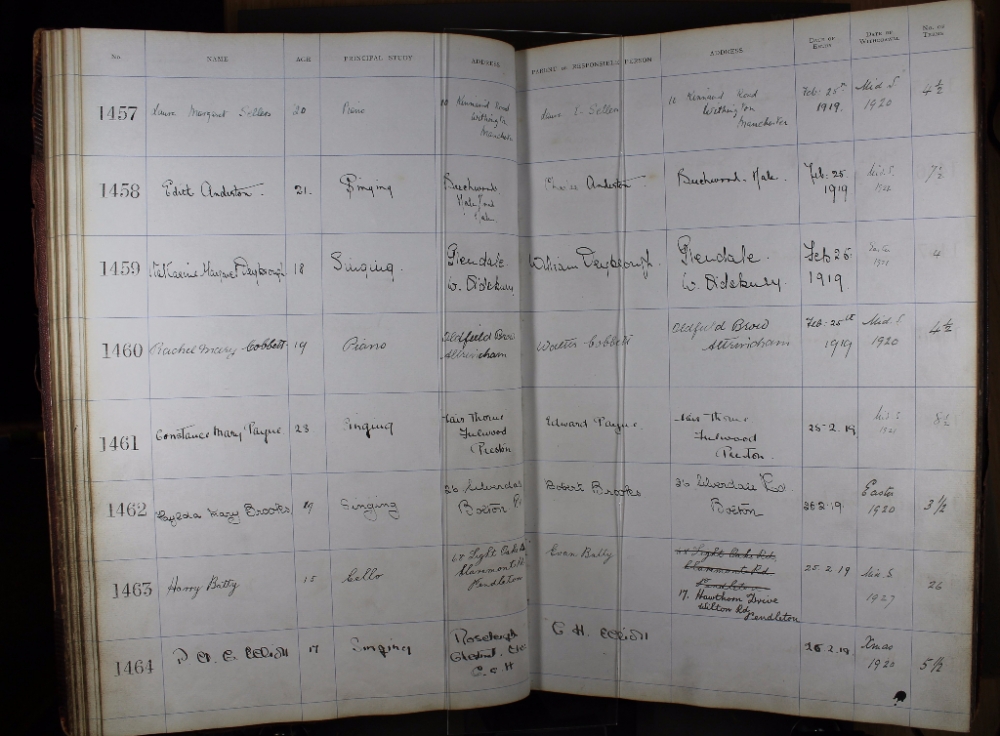 No. NAME AGE PRINCIPAL STUDY ADDRESS PARENT or RESPONSIBLE PERSON ADDRESS DATE OF ENTRY DATE OF WITHDRAWAL No. OF TERMS
1457 Margaret Sellers 20 Piano 10 Kinnaird Road Withington Manchester 10 Kinnaird Road Withington Manchester Feb: 25th 1919. Mid S 1920 4½
1458 Edith Anderton. 21. Singing Beechwood Hale Road Hale. Anderton Beechwood. Hale. Feb: 25 1919 7½
1459 Katharine Margaret 18 Singing. Glendale. W. Didsbury. William Glendale. W. Didsbury. Feb 25 1919. 4
1460 Rachel Mary Cobbett 19 Piano Oldfield Brow Altrincham Walter Cobbett Oldfield Brow Altrincham Feb: 25th 1919 Mid. S 1920 4½
1461 Constance Mary Payne 23 Singing Fair Thorne Fulwood Preston Edward Payne. Fulwood Preston. 25-2.19 8½
1462 Mary Brooks 19 Singing 26 Silverdale Bolton Rd Robert Brooks 26 Silverdale Rd. Bolton 25 2.19. Easter 1920 3½
1463 Harry Batty 15 Cello 68 Light Oaks Rd Claremont Rd Pendleton Evan Batty 68 Light Oaks Rd. Claremont Rd. Pendleton 17. Hawthorn Drive Wilton Rd. Pendleton 25 2.19 Mid. S 1927 26
1464 17 Singing Roseleigh C. o H G H. Elliott 25.2.19 Xmas 1920 5½